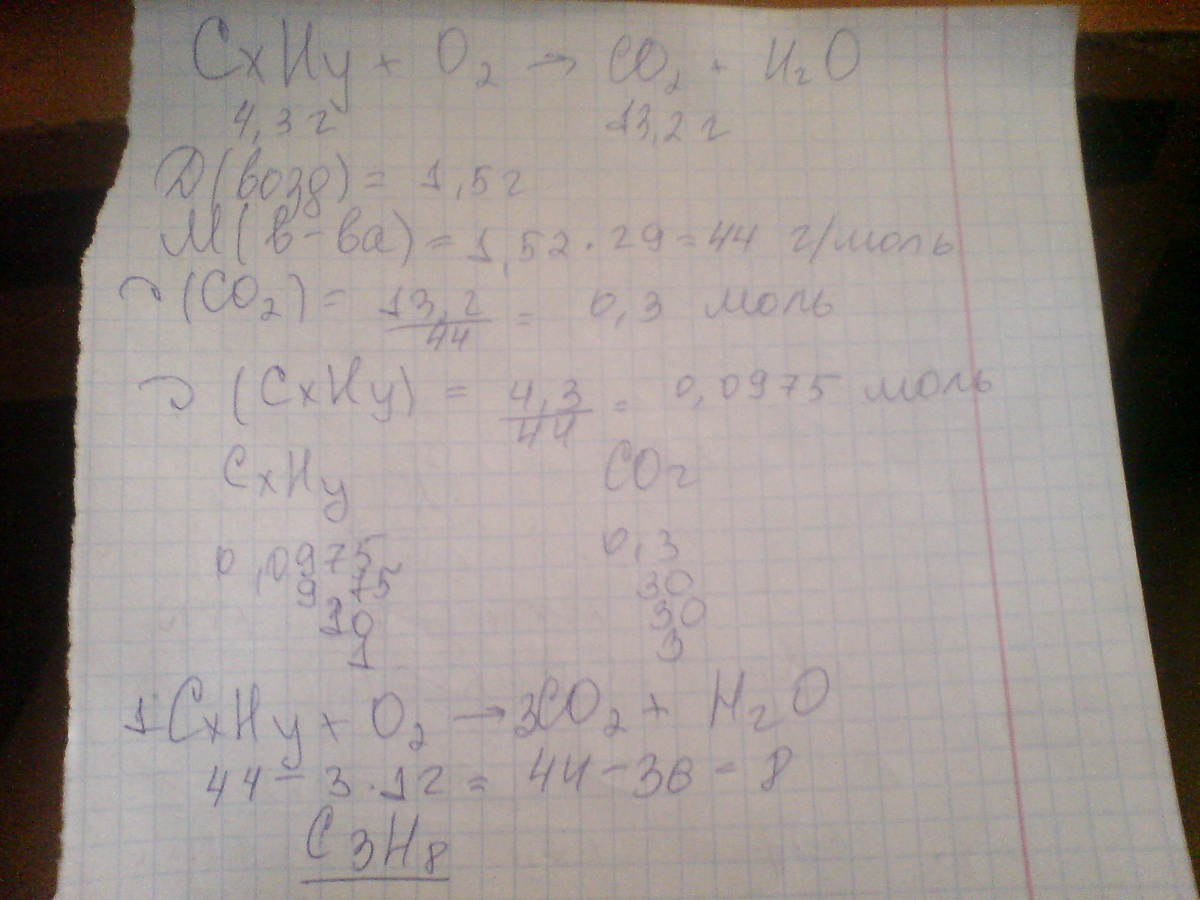 CxHy + O₂ → CO₂ + H₂O
4,3 г 13,2 г
D(возд) = 1,5 г
M(в-ва) = 1,52 · 29 = 44 г/моль
ν(CO₂) = 13,2/44 = 0,3 моль
ν(CxHy) = 4,3/44 = 0,0975 моль
CxHy CO₂
0,0975 0,3
9,75 30
10 30
1 3
1CxHy + O₂ → 3CO₂ + H₂O
44 - 3 · 12 = 44 - 36 = 8
C₃H₈